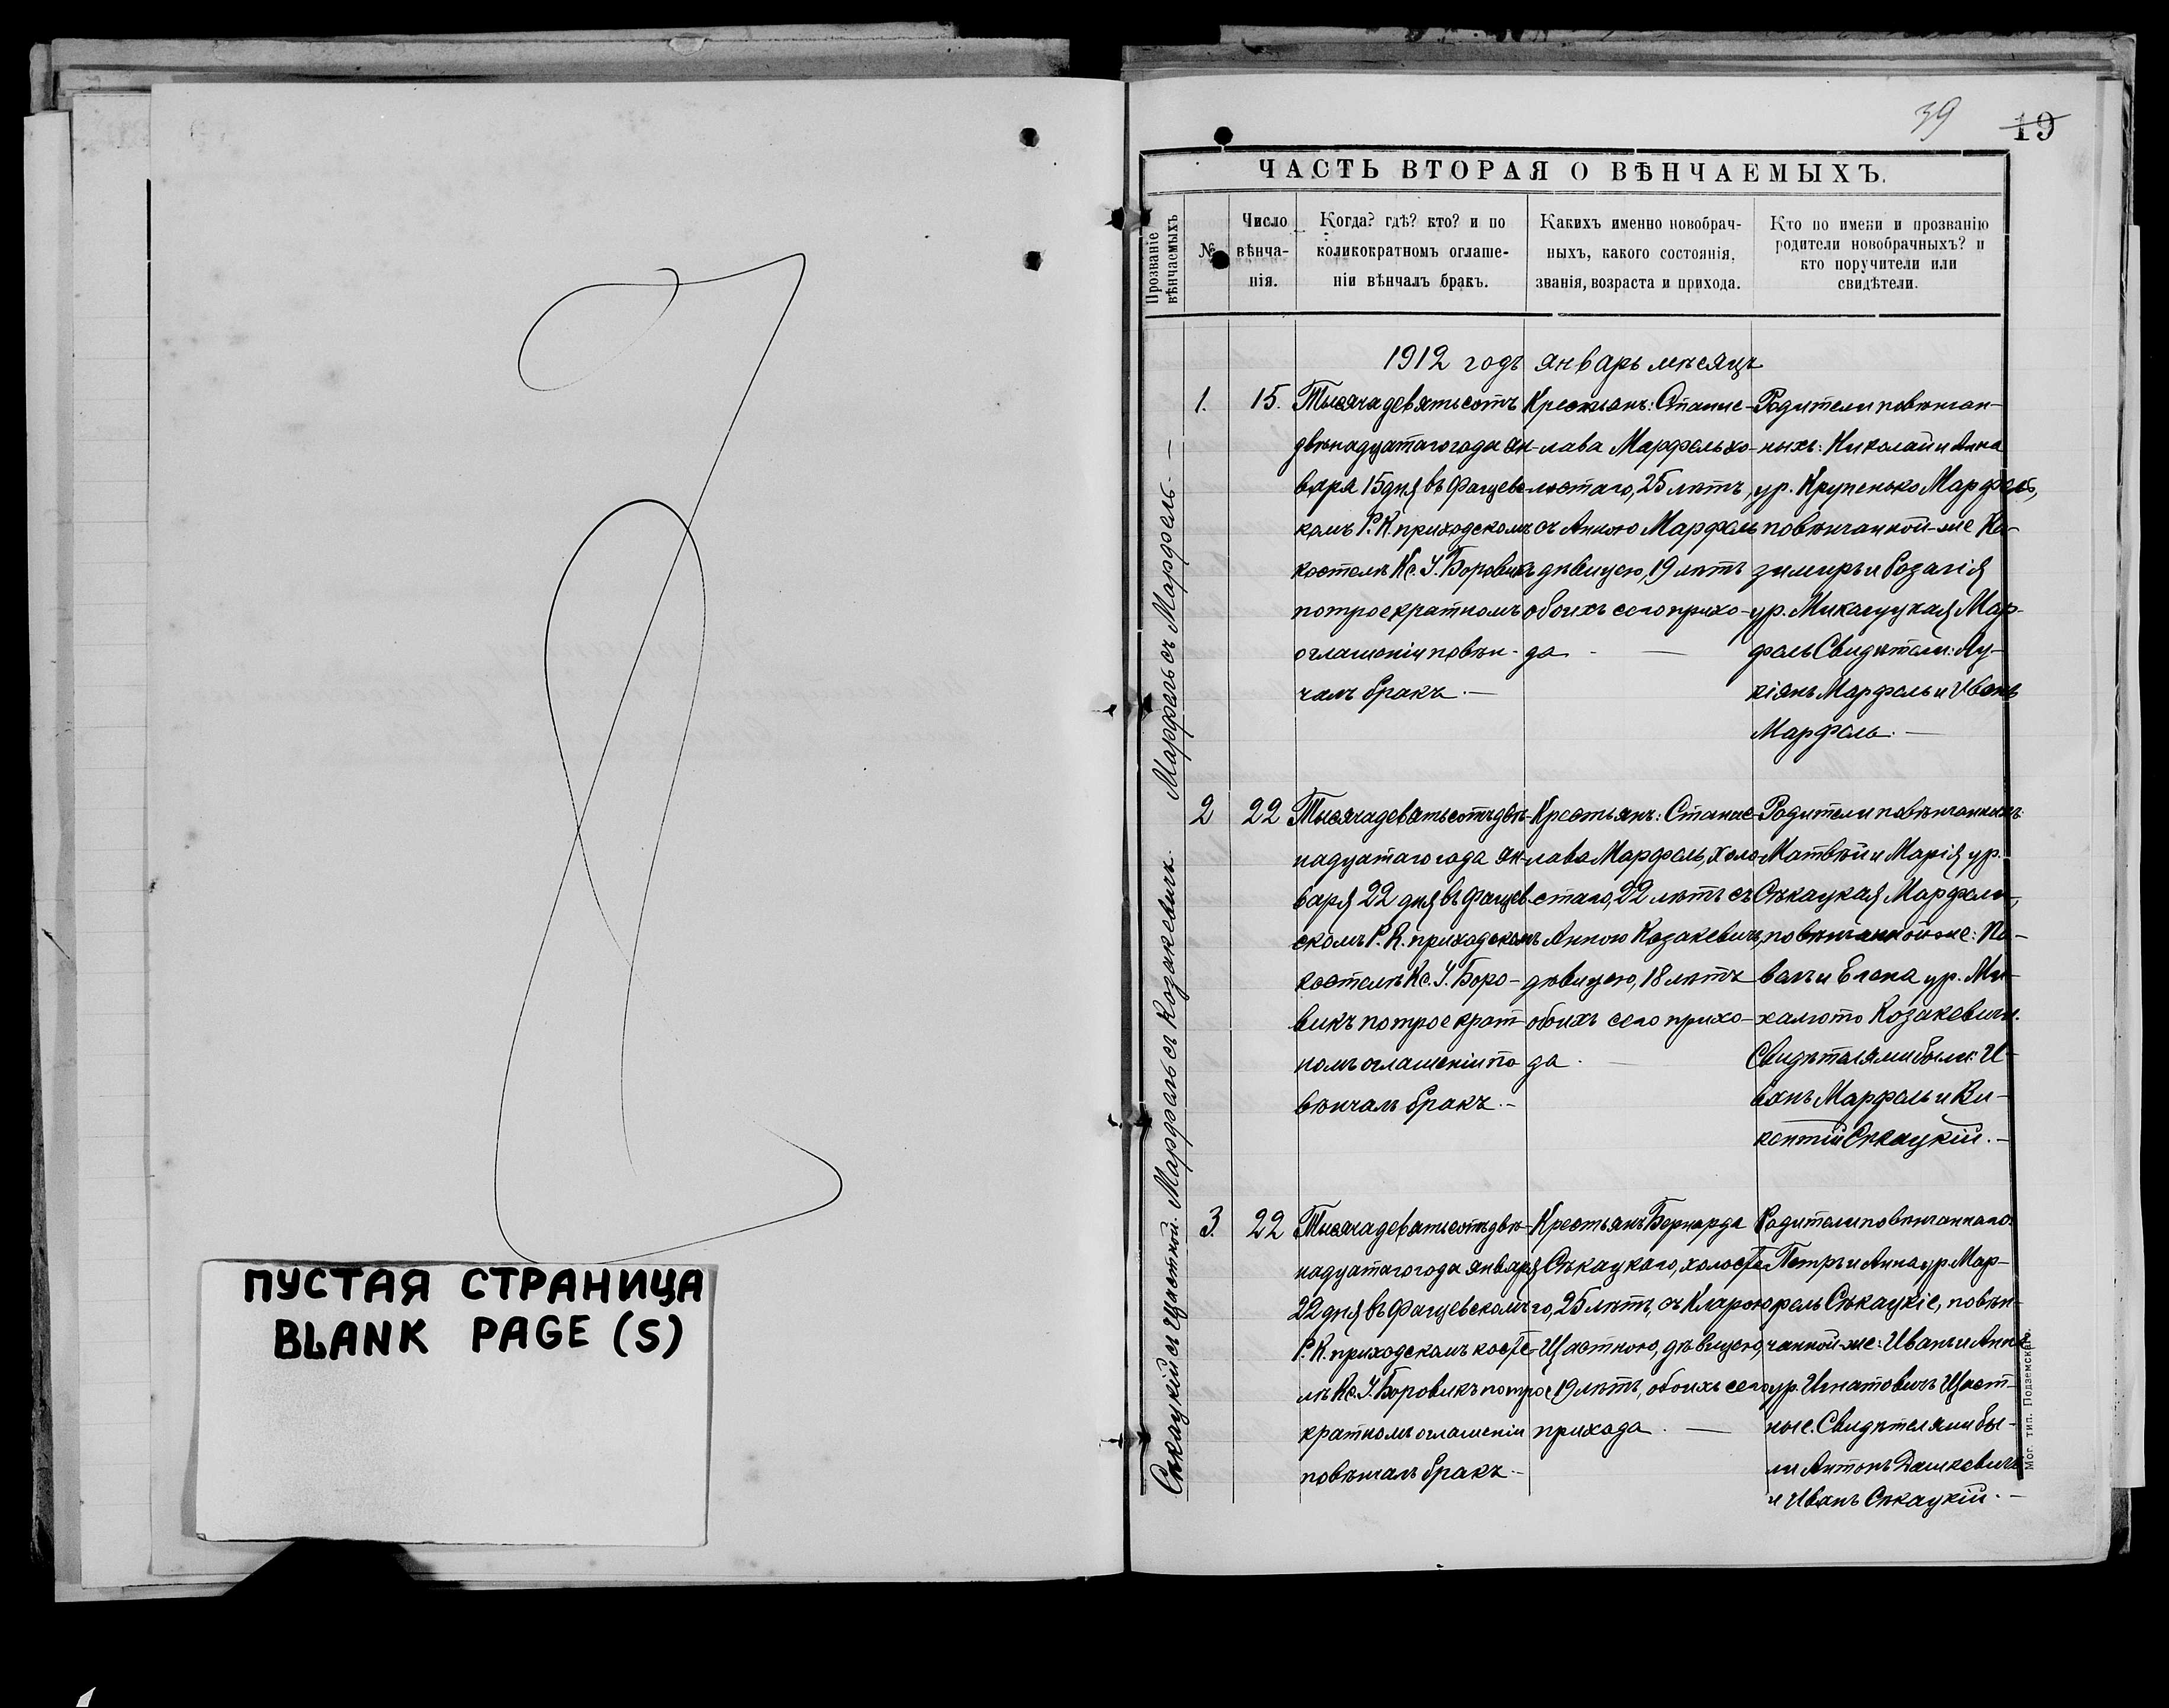 ПУСТАЯ СТРАНИЦА
BLANK PAGE (S)
39
19
ЧАСТЬ ВТОРАЯ О ВѢНЧАЕМЫХЪ.
Прозваніе
вѣнчаемыхъ
№
Число
вѣнча-
нія.
Когда? гдѣ? кто? и по
коликократномъ оглаше-
ніи вѣнчалъ бракъ.
Каких​ъ именно новобрач-
ныхъ, какого состоянія,
званія, возраста и прихода.
Кто по имени и прозванію
родители новобрачныхъ? и
кто поручители или
свидѣтели.
1912 годъ январь мѣсяцъ
Марфель съ Марфель.—
1.
15.
Тысяча девятьсотъ
двѣнадцатаго года ян-
варя 15 дня въ Фащевс-
комъ Р. К. приходскомъ
костелѣ Кс. І. Боровикъ
по троекратномъ
оглашеніи повѣн-
чалъ бракъ.—
Крестьянъ: Станис-
лава Марфель хо-
лостаго, 25 лѣтъ,
съ Анною Марфель
дѣвицею, 19 лѣтъ
обоихъ сего прихо-
да —
Родители повѣнчан-
ныхъ: Николай и Анна
ур. Крупенько Марфель,
повѣнчанной-же Ка-
зимиръ и Розалія
ур. Микалуцкая Мар-
фель Свидѣтели: Лу-
кіянъ Марфель и Иванъ
Марфель.—
Марфель съ Козакевичъ.
2
22
Тысяча девятьсотъ двѣ-
надцатаго года ян-
варя 22 дня въ Фащев
скомъ Р. К. приходскомъ
костелѣ Кс. І. Боро-
викъ по троекрат-
номъ оглашеніи по
вѣнчалъ бракъ.—
Крестьянъ: Станис-
лава Марфель, холо
стаго, 22 лѣтъ съ
Анною Козакевичъ,
дѣвицею, 18 лѣтъ
обоихъ сего прихо-
да.
Родители повѣнчанныхъ:
Матвѣй и Марія ур.
Сѣкацкая Марфели,
повѣнчанной же: Па-
велъ и Елена ур. Ми-
халюто Козакевичи.
Свидѣтелями были: И-
ванъ Марфель и Ви-
кентій Сѣкацкій.—
Сѣкацкій съ Щастной.
3.
22
Тысяча девятьсотъ двѣ-
надцатаго года января
22 дня въ Фащевскомъ
Р. К. приходскомъ косте-
лѣ Кс. І. Боровикъ по трое
кратномъ оглашеніи
повѣнчалъ бракъ.—
Крестьянъ Бернарда
Сѣкацкаго, холоста-
го, 25 лѣтъ, съ Кларою
Щастною, дѣвицею,
19 лѣтъ, обоихъ сего
прихода. —
Родители повѣнчаннаго:
Петръ и Анна ур. Мар-
фель Сѣкацкіе, повѣн-
чанной-же: Иванъ и Анна
ур. Игнатовичъ Щаст-
ные. Свидѣтелями бы-
ли Антонъ Дашкевичъ
и Иванъ Сѣкацкій.—
Мог. тип. Подземскаго.